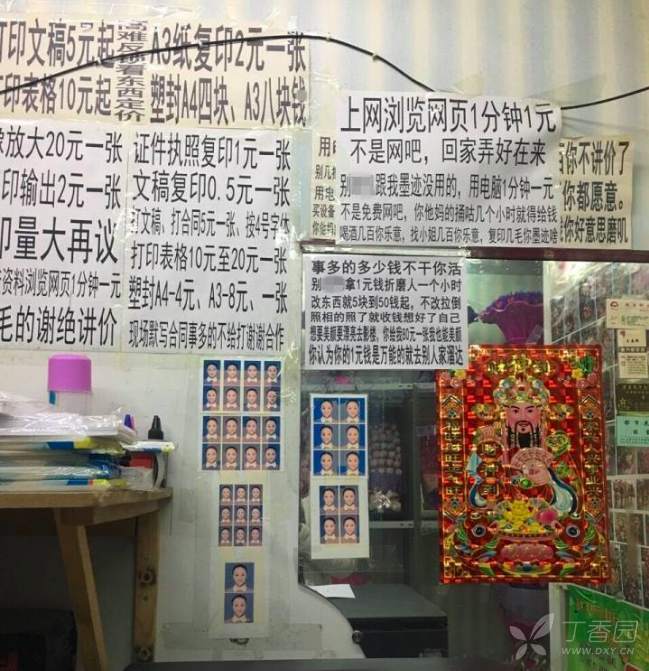 打印文稿5元起
打印表格10元起
高难度
看东西定价
A3纸复印2元一张
塑封A4四块、A3八块钱
放大20元一张
印输出2元一张
印量大再议
资料浏览网页1分钟一元
毛的谢绝讲价
证件执照复印1元一张
文稿复印0.5元一张
打文稿、打合同5元一张、按4号字体
打印表格10元至20元一张
塑封A4-4元、A3-8元、一张
现场默写合同事多的不给打谢谢合作
用电
别几
用电
买设备
你他妈
上网浏览网页1分钟1元
不是网吧，回家弄好在来
别 跟我墨迹没用的，用电脑1分钟一元
不是免费网吧，你他妈的捅咕几个小时就得给钱
喝酒几百你乐意，找小姐几百你乐意，复印几毛你墨迹啥
你不讲价了
你都愿意。
你好意思磨叽
事多的多少钱不干你活
别 拿1元钱折磨人一个小时
改东西就5块到50钱起，不改拉倒
照相的照了就收钱想好了自己
想要美颜要漂亮去影楼，你给我80元一张我也能美颜
你认为你的1元钱是万能的就去别人家溜达
丁香园
WWW.DXY.CN